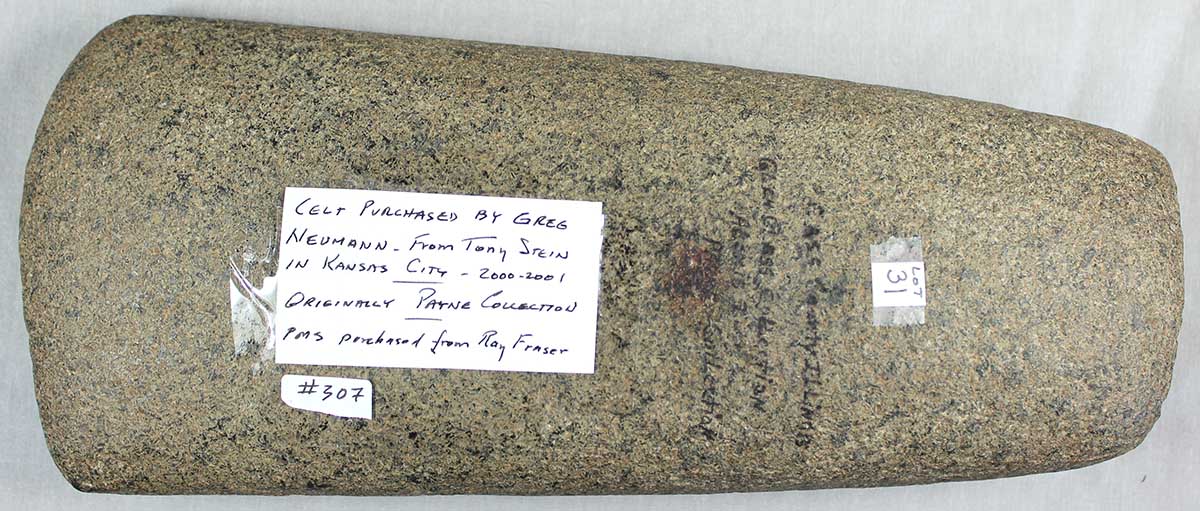 CELT PURCHASED BY GREG
NEUMANN - FROM TONY STEIN
IN KANSAS CITY - 2000-2001
ORIGINALLY PAYNE COLLECTION
PMS purchased from Ray Fraser
#307
LOT
31
CASS County ILLINOIS
Collection